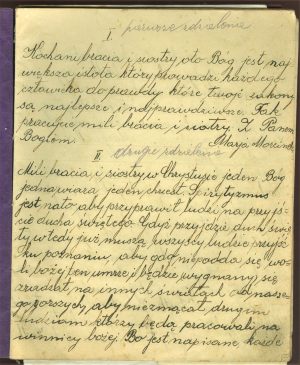 I pierwsze zdzielenie
Kochani bracia i siostry, oto Bóg jest naj
większa istota który prowadzi każdego
człowieka do prawdy które twoje zakony
są najlepsze i najprawdziwsze. Tak
pracujcie mili bracia i siostry. Z Panem
Bogiem. Marja
II drugie zdzielenie
Mili bracia i siostry w Chrystusie jeden Bóg
jedna wiara jeden chrzest. Spirytyzm
jest na to aby przyprawił ludzi na przyjś-
cie ducha świętego. Gdyż przyjdzie duch świę-
ty wtedy już muszą wszyscy ludzie przyjść
ku poznaniu, aby gdo niepodda się wo-
li bożej ten umrze i będzie wygnany się
na innych światach od nasze-
go gorszych, aby niezmącał drugim
ludziom którzy będą pracowali na
winnicy bożej. Bo jest napisane każde